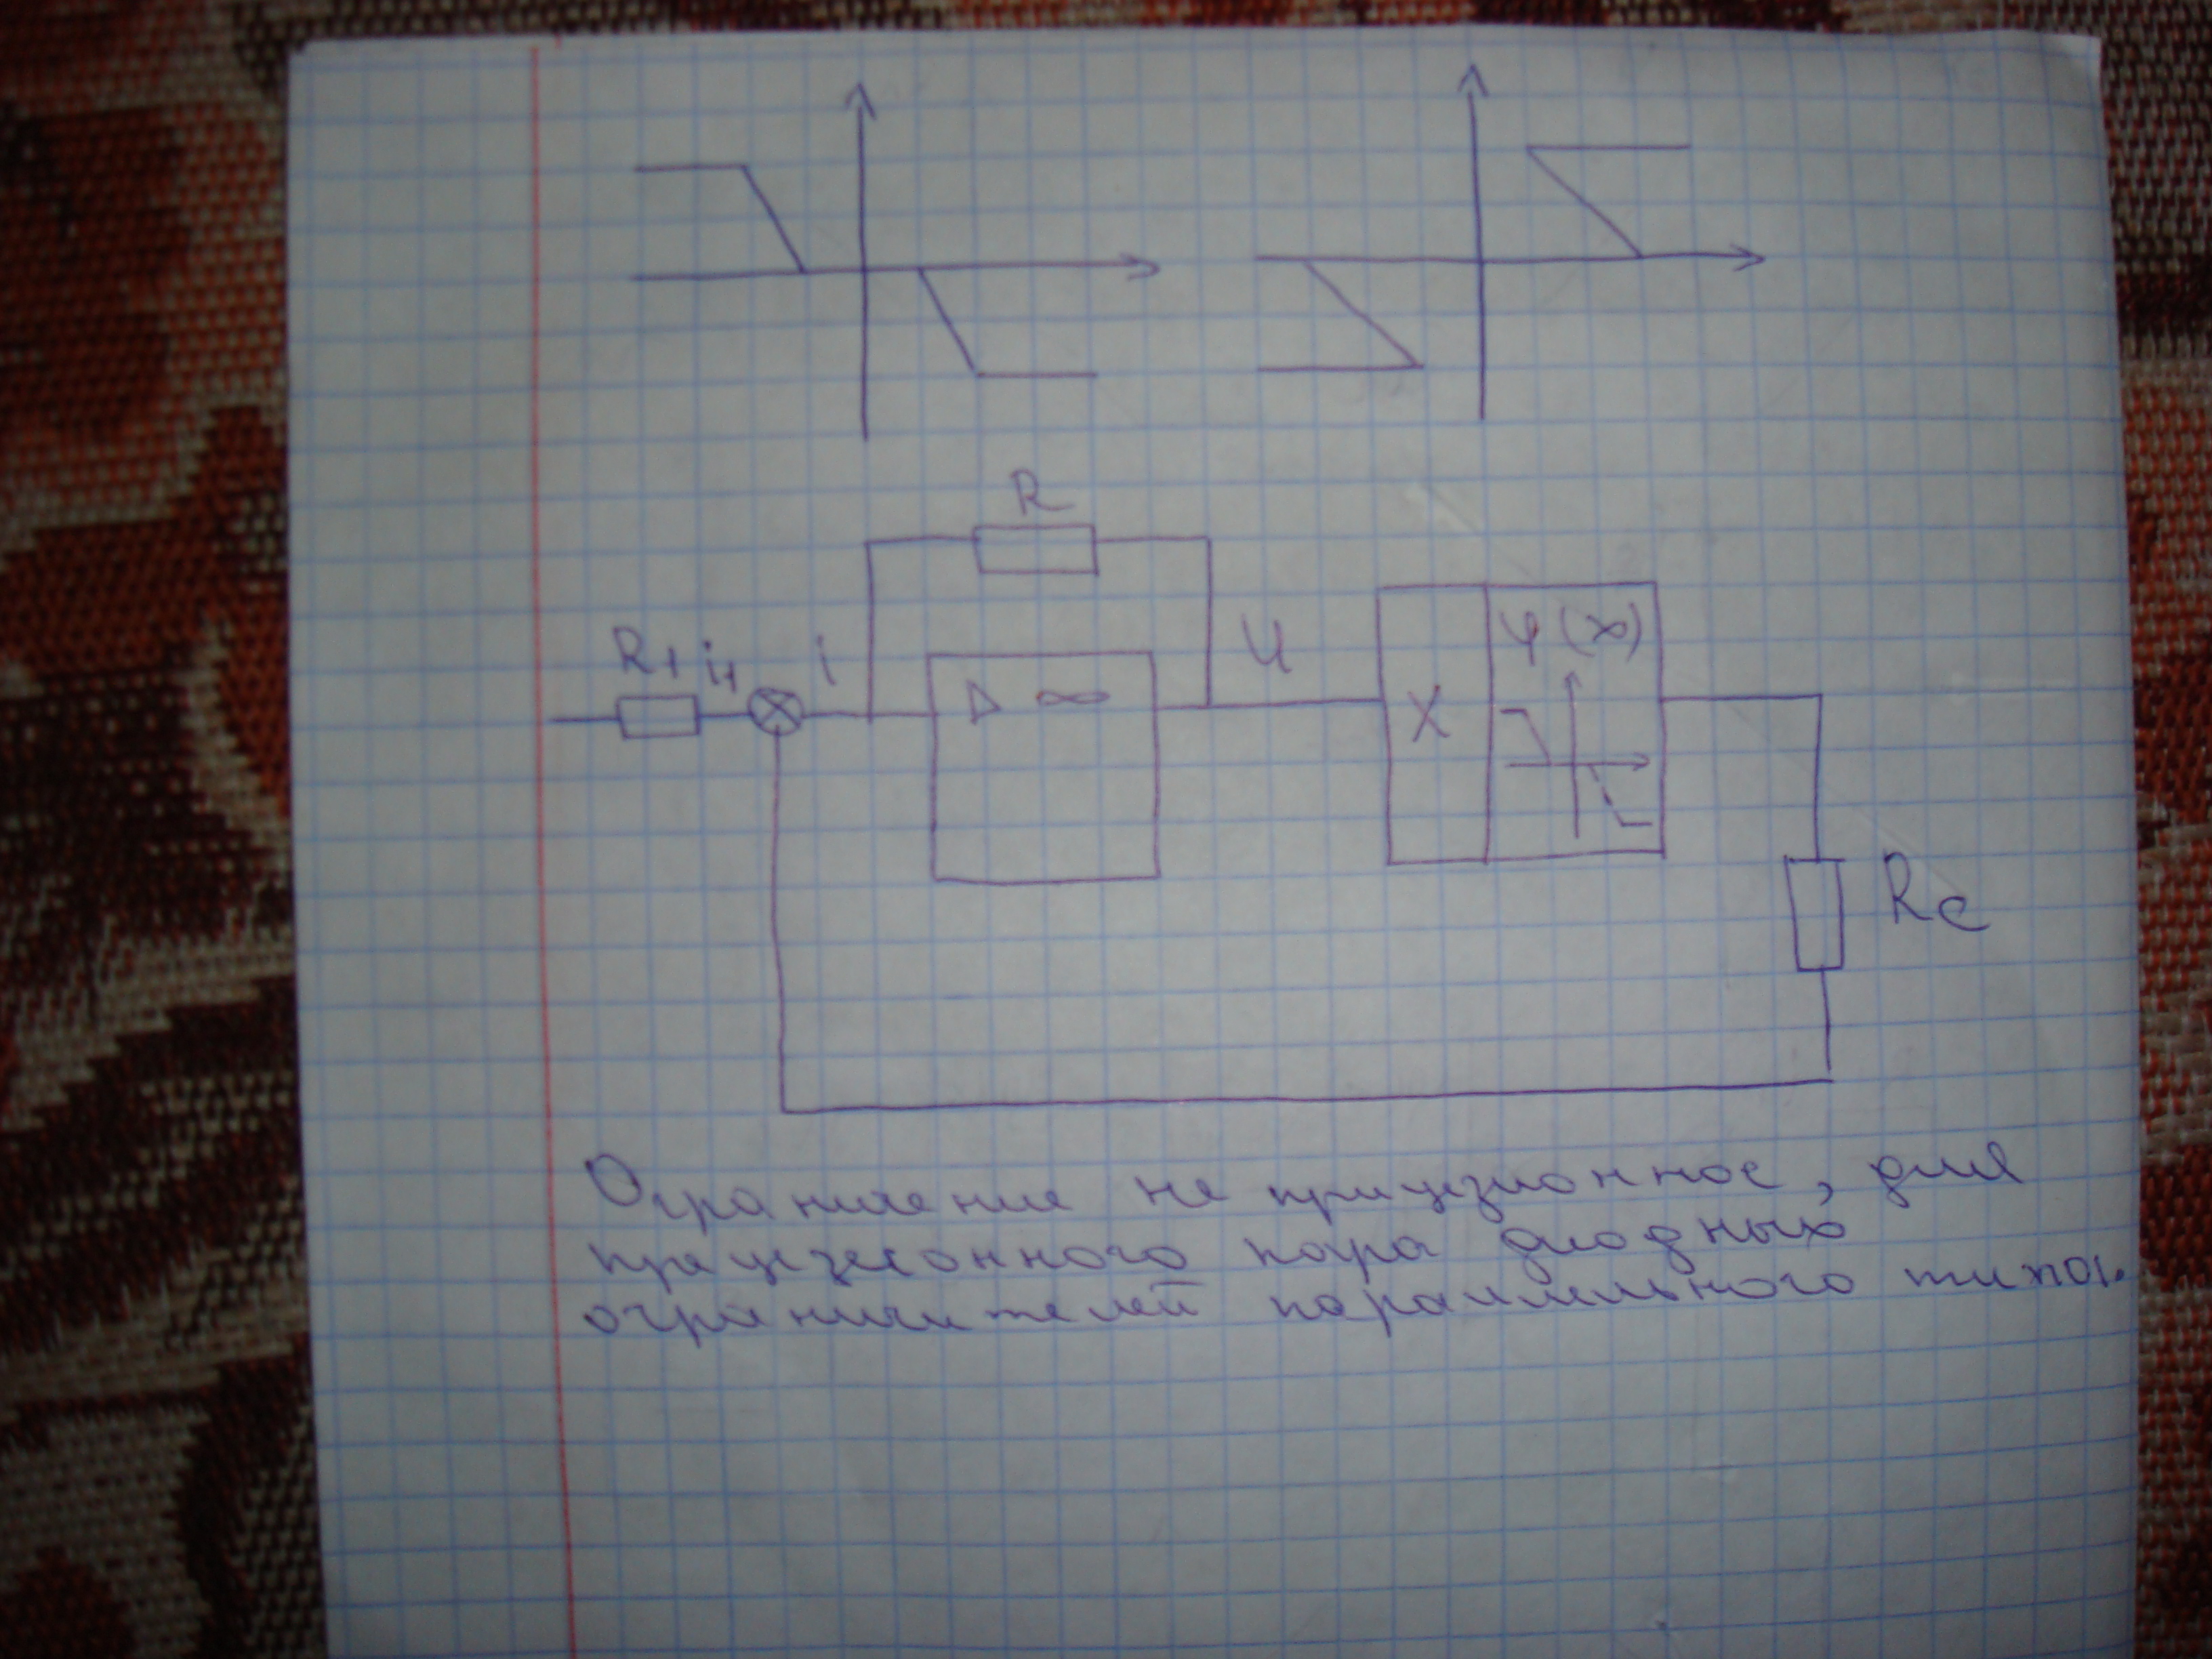 R
R1 i1 i
U
X φ(x)
▷ ∞
Rс
Ограничение не прицизионное, для
прецизеонного пара диодных
ограничителей параллельного типа.